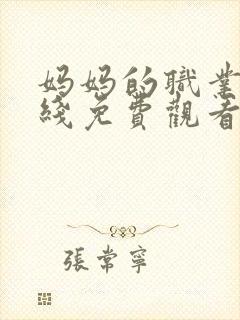 妈妈的職業
綫免費觀看
張常寧